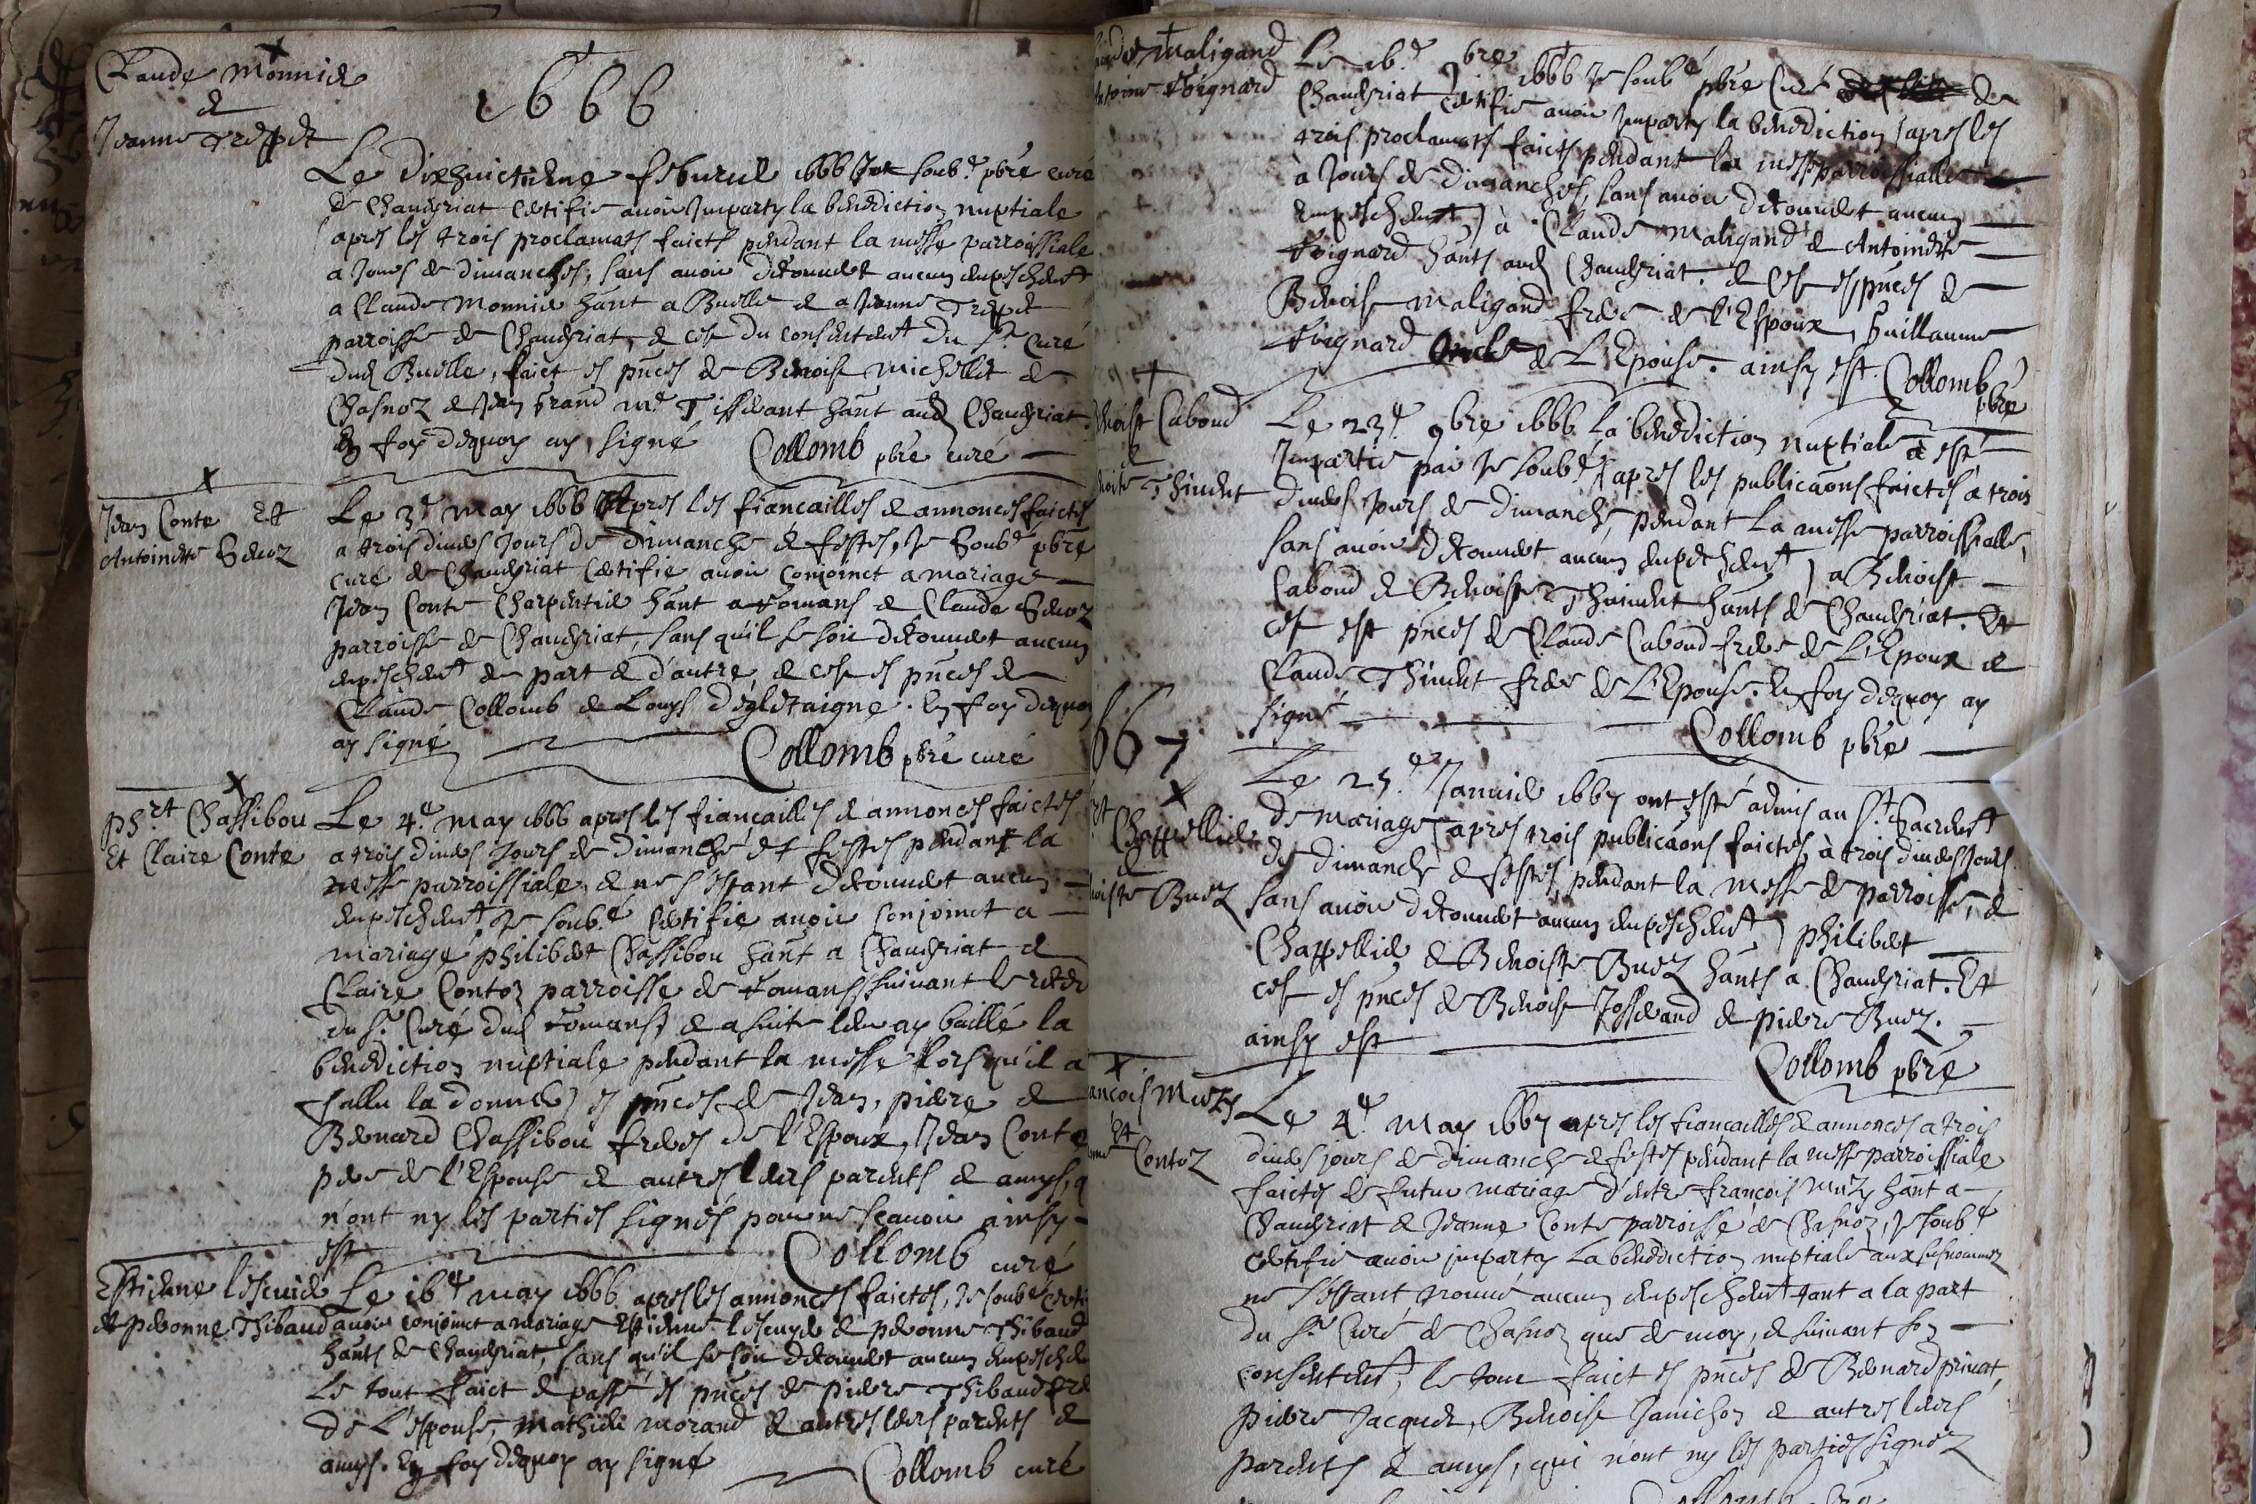 Claude Monnier
et
Jeanne Treppet
1666
Le dixhuictiesme feburier 1666 Je soub.é pbre curé
de Chaueyriat certifie auoir Imparty la benediction nuptiale
apres les trois proclamats faicts pendant la messe parroissiale
a Jours de dimanches, sans auoir decouuert aucun empeschemt
a Claude Monnier hant a Buelle et a Jeanne Treppet
parroisse de Chaueyriat, et ce du consentemt du Sr Curé
dud Buelle, faict es pnces de Benoist Michellet de
Chasnoz et Jean Grand me Tisserant hant aud Chaueyriat.
En foy dequoy ay signé Collomb pbre curé
Jean Conte Et
Antoinette Geuoz
Le 3e may 1666 Apres les fiancailles et annonces faictes
a trois diuers Jours de Dimanche et festes, Je Soubé pbre
curé de Chaueyriat Certifie auoir Conjoinct a mariage
Jean Conte Charpentier hant a Romans et Claude
parroisse de Chaueyriat, sans qu'il se soit decouuert aucun
empeschemt de part et d'autre, et ce es pnces de
Claude Collomb et Louys . En foy dequoy
ay signé Collomb pbre curé
Phrt Chassibou
Et Claire Conte
Le 4e may 1666 apres les fiancailles et annonces faictes
a trois diuers Jours de dimanche et festes pendant la
messe parroissiale, et ne s'estant decouuert aucun
empeschemt Je soubé Certifie auoir Conjoinct a
mariage philibert Chassibou hant a Chaueyriat et
Claire Contoz parroisse de Romans suiuant le
du Sr Curé dud Romans, et a suite leur ay baillé la
benediction nuptiale pendant la messe (lors qu'il a
fallu la donner) es pnces de Jean, pierre et
Bernard Chassibou freres de l'Espoux, Jean Conte
pere de l'Espouse et autres leurs parents et amys, q
n'ont ny les parties signés pour ne scauoir ainsy
est Collomb curé
Estienne lescuier
et peronne Thibaud
Le 16e may 1666 apres les annonces faictes, Je soubé certi
auoir conjoinct a mariage Estienne lescuyer et peronne Thibaud
hants de Chaueyriat, sans qu'il se soit decouuert aucun empesche
Le tout faict et passé es pnces de pierre Thibaud fre
de L'espouse, Mathieu Morand et autres leurs parents et
amys. En foy dequoy ay signé Collomb curé
Maligand
Antoine Poignard
Le 16e 9bre 1666 Je soubé pbre Curé de
Chaueyriat Certifie auoir Imparty la benediction (apres les
trois proclamats faicts pendant la messe parroissialle
à Jours de dimanches, sans auoir decouuert aucun
empeschemt) à Claude Maligand et Antoinette
Poignard hants aud Chaueyriat. et Ce es pnces de
Benoist Maligand frere de l'Espoux, Guillaume
Poignard Oncle de L'Epouse. ainsy est Collomb
pbre
Benoist Cabond
et
Thiuent
Le 23e 9bre 1666 la benediction nuptiale a esté
Impartie par Je soubé (apres les publicaons faictes a trois
diuers Jours de dimanche pendant la messe parroissialle,
sans auoir decouuert aucun empeschemt) a Benoist
Cabond et Benoiste Thiuent hants de Chaueyriat. Et
ce est pnces de Claude Cabond frere de L'Epoux et
Claude Thiuent frere de L'Epouse. En foy dequoy ay
signé Collomb pbre
667
Chappellier
et
Buez
Le 25e Januier 1667 ont esté admis au St Sacremt
de mariage (apres trois publicaons faictes, à trois diuers Jours
de dimanche et festes, pendant la Messe de parroisse, et
sans auoir decouuert aucun empeschemt) philibert
Chappellier et Benoiste Buez hants a Chaueyriat. Et
ce es pnces de Benoist Josserand et pierre Buez.
ainsy est
Collomb pbre
ancois Muzy
Et
Contoz
Le 4e May 1667 apres les fiancailles et annonces a trois
diuers jours de dimanche et festes pendant la messe parroissiale
faictes de futur mariage d'entre françois Muzy hant a
Chaueyriat et Jeanne Conte parroisse de Chasnoz, Je soubé
Certifie auoir imparty La benediction nuptiale aux susnommez
ne s'estant trouué aucun empeschemt tant a la part
du Sr Curé de Chasnoz que de moy, et suiuant son
consentemt, le tout faict es pnces de Bernard priuat,
pierre Jacquet, Benoist Janichon et autres leurs
parents et amys, qui n'ont ny les parties signez